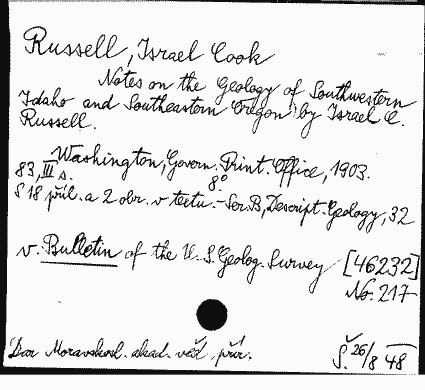 Russell, Israel Cook
Notes on the Geology of Southwestern
Idaho and Southeastern Oregon by Israel C.
Russell.
Washington, Govern. Print. Office, 1903.
83, III s. 8°
S 18 příl. a 2 obr. v textu. - Ser. B, Descript. Geology, 32
v. Bulletin of the U. S. Geolog. Survey [46232]
No. 217
Dar Moravskosl. akad. věd. přír.
Š. 26/8 48